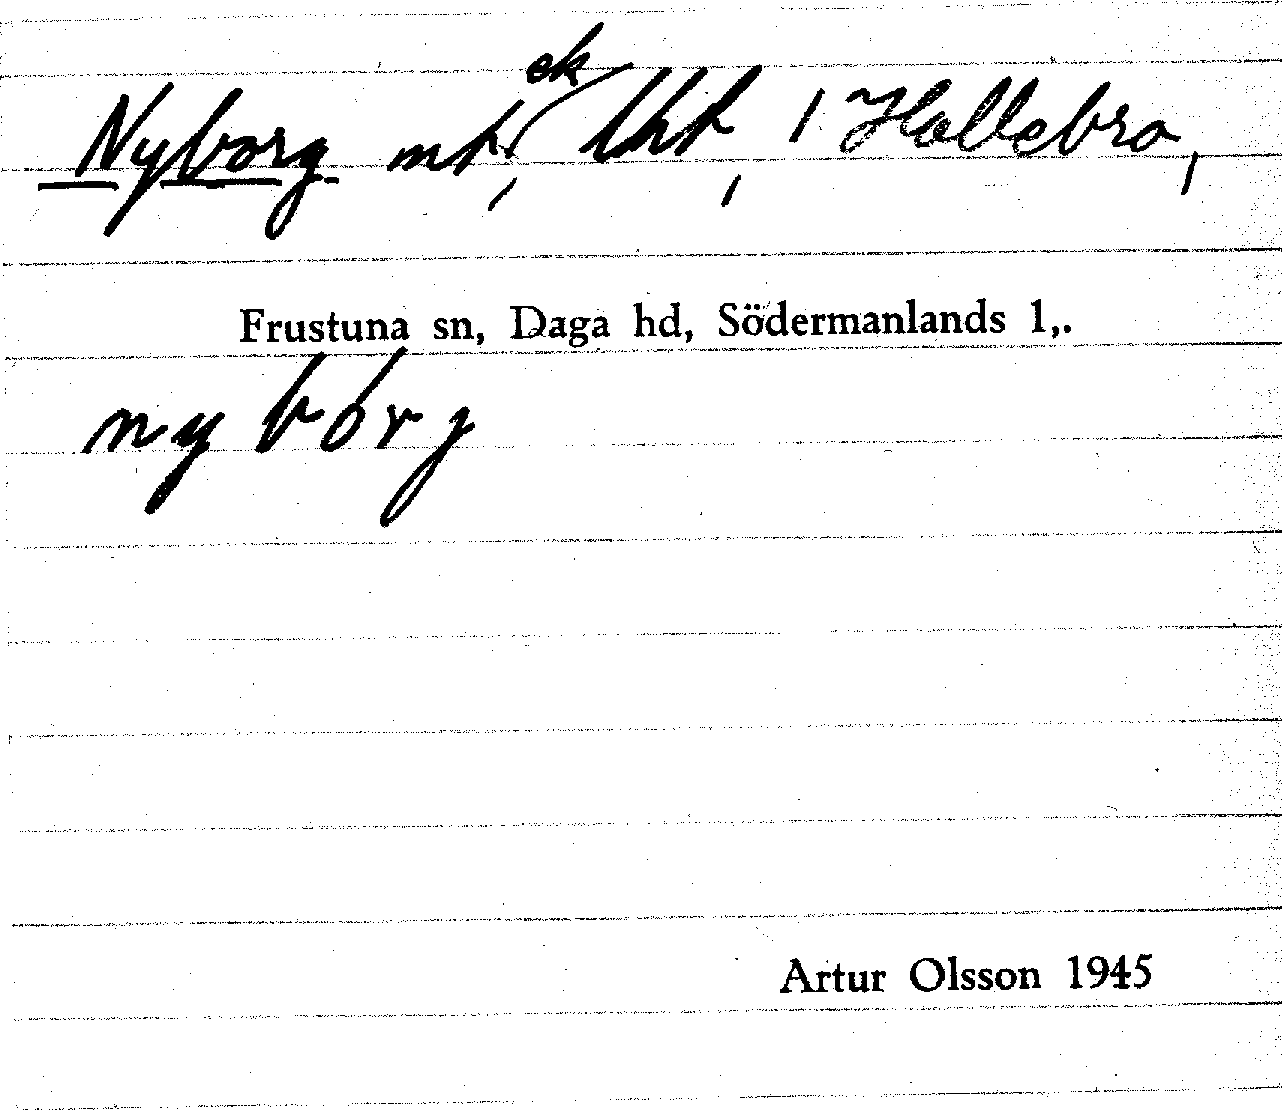 ek
Nyborg mt, lht, i Hallebro,
Frustuna sn, Daga hd, Södermanlands l,.
nybórg
Artur Olsson 1945